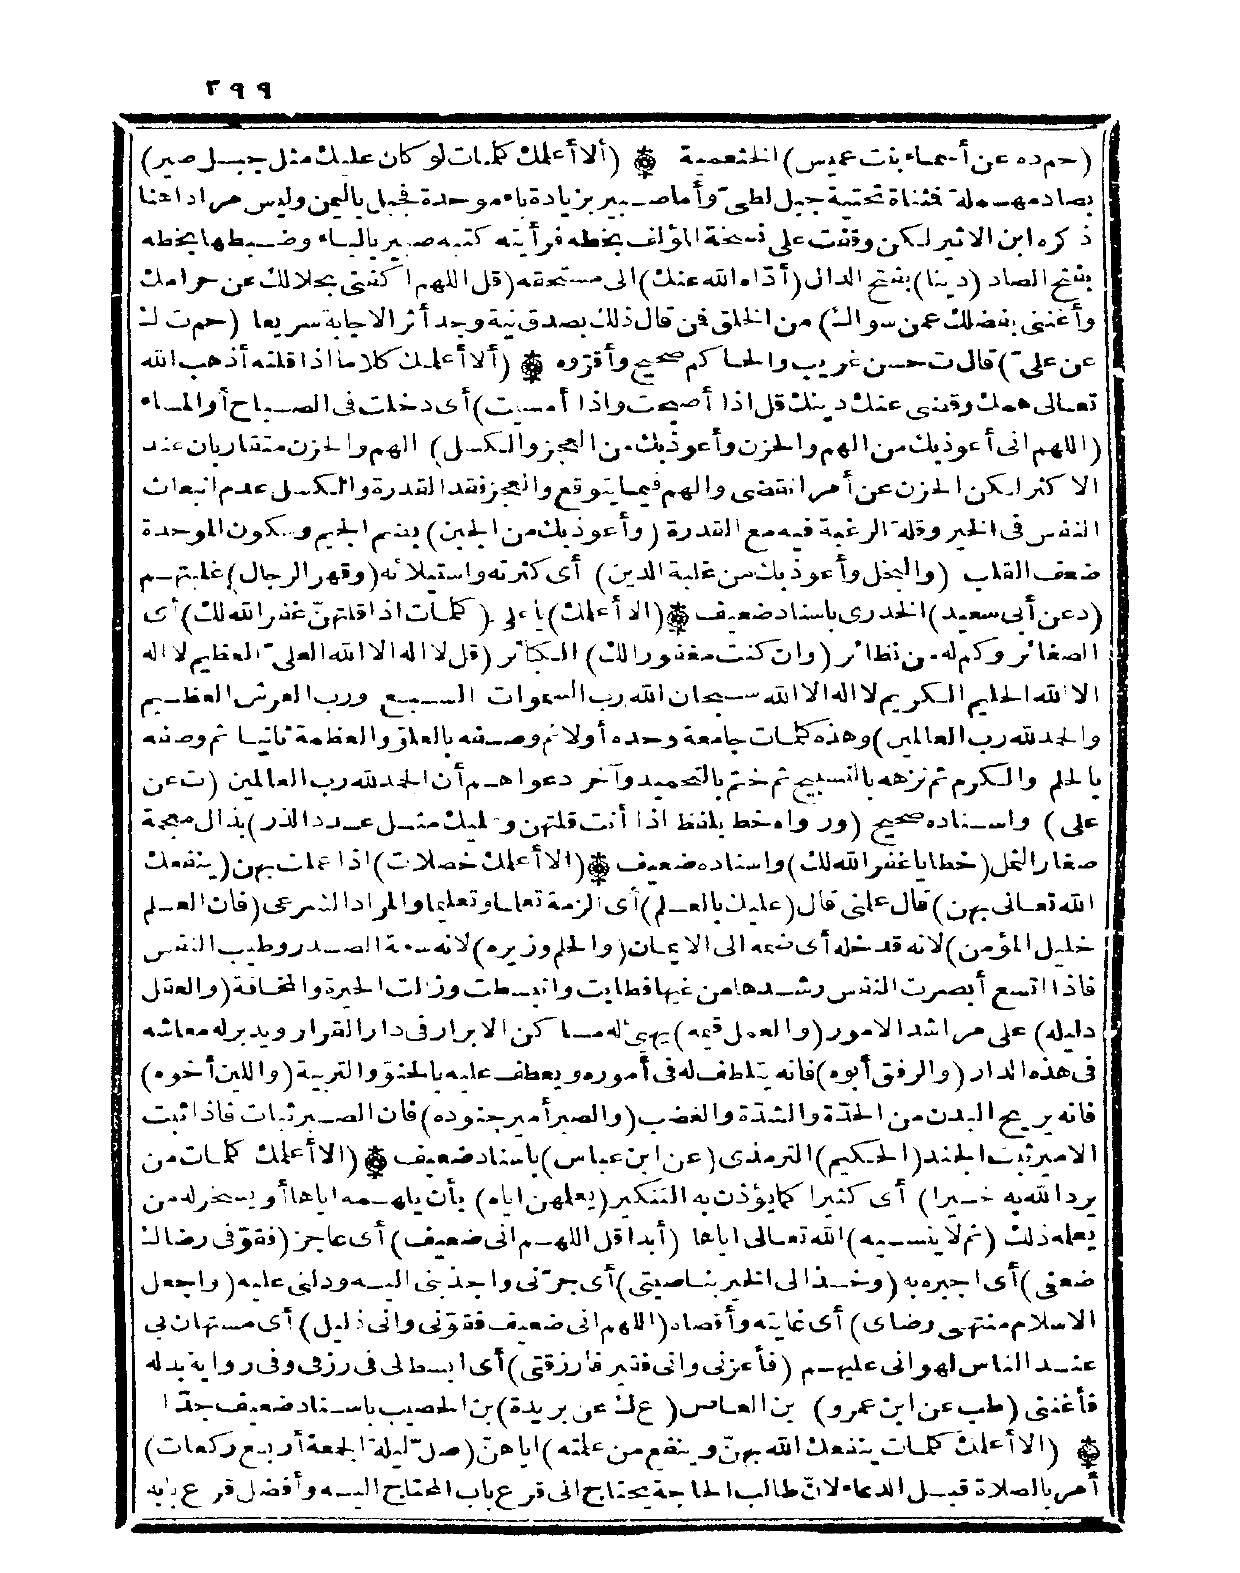 ٣٩٩
(حم ده عن أسماء بنت عميس) الخثعمية ۞ (ألا أعلمك كلمات لو كان عليك مثل جبل صير)
بصاد مهملة فمثناة تحتية جبل لطى وأما صبير بزيادة باء موحدة فجبل باليمن وليس مرادا هنا
ذكره ابن الاثير لكن وقفت على نسخة المؤلف بخطه فرأيته كتبه صبير بالباء وضبطها بخطه
بفتح الصاد (دينا) بفتح الدال (أدّاه الله عنك) الى مستحقه (قل اللهم اكفنى بحلالك عن حرامك
وأغننى بفضلك عمن سواك) من الخلق فمن قال ذلك بصدق نية وجد أثر الاجابة سريعا (حم ت ك
عن علىّ) قال ت حسن غريب والحاكم صحيح وأقرّوه ۞ (ألا أعلمك كلاما اذا قلته أذهب الله
تعالى همك وقضى عنك دينك قل اذا أصبحت واذا أمسيت) أى دخلت فى الصباح أو المساء
(اللهم انى أعوذ بك من الهم والحزن وأعوذ بك من العجز والكسل) الهم والحزن متقاربان عند
الاكثر لكن الحزن عن أمر انقضى والهم فيما يتوقع والعجز فقد القدرة والكسل عدم انبعاث
النفس فى الخير وقلة الرغبة فيه مع القدرة (وأعوذ بك من الجبن) بضم الجيم وسكون الموحدة
ضعف القلب (والبخل وأعوذ بك من غلبة الدين) أى كثرته واستيلائه (وقهر الرجال) غلبتهم
(د عن أبى سعيد) الخدرى باسناد ضعيف ۞ (الا أعلمك) يا على (كلمات اذا قلتهنّ غفر الله لك) أى
الصغائر وكم له من نظائر (وان كنت مغفورا لك) الكبائر (قل لا اله الا الله العلىّ العظيم لا اله
الا الله الحليم الكريم لا اله الا الله سبحان الله رب السموات السبع ورب العرش العظيم
والحمد لله رب العالمين) وهذه كلمات جامعة وحده أولا ثم وصفه بالعلوّ والعظمة ثانيا ثم وصفه
بالحلم والكرم ثم نزهه بالتسبيح ثم ختم بالتحميد وآخر دعواهم أن الحمد لله رب العالمين (ت عن
على) واسناده صحيح (ورواه خط بلفظ اذا أنت قلتهن وعليك مثل عدد الذر) بذال معجمة
صغار النمل (خطايا غفر الله لك) واسناده ضعيف ۞ (الا أعلمك خصلات) اذا عملت بهن (ينفعك
الله تعالى بهن) قال علمنى قال (عليك بالعلم) أى الزمه تعلما وتعليما والمراد الشرعى (فان العلم
خليل المؤمن) لانه قد خله أى ضمه الى الايمان (والحلم وزيره) لانه سعة الصدر وطيب النفس
فاذا اتسع أبصرت النفس رشدها من غيها فطابت وانبسطت وزالت الحيرة والمخافة (والعقل
دليله) على مراشد الامور (والعمل قيمه) يهيئ له مساكن الابرار فى دار القرار ويدبر له معاشه
فى هذه الدار (والرفق أبوه) فانه يتلطف له فى أموره ويعطف عليه بالحنوّ والتربية (واللين أخوه)
فانه يريح البدن من الحدّة والشدّة والغضب (والصبر أمير جنوده) فان الصبر ثبات فاذا ثبت
الامير ثبت الجند (الحكيم) الترمذى (عن ابن عباس) باسناد ضعيف ۞ (الا أعلمك كلمات من
يرد الله به خيرا) أى كثيرا كما يؤذن به التنكير (يعلمهن اياه) بأن يلهمه اياها أو يسخر له من
يعلمه ذلك (ثم لا ينسيه) الله تعالى اياها (أبدا قل اللهم انى ضعيف) أى عاجز (فقوّ فى رضاك
ضعفى) أى اجبره به (وخذ الى الخير بناصيتى) أى جرّنى واجذبنى اليه ودلنى عليه (واجعل
الاسلام منتهى رضاى) أى غايته وأقصاه (اللهم انى ضعيف فقوّنى وانى ذليل) أى مستهان بى
عند الناس لهوانى عليهم (فأعزنى وانى فقير فارزقنى) أى ابسط لى فى رزقى وفى رواية بدله
فأغننى (طب عن ابن عمرو) بن العاص (ع ك عن بريدة) بن الحصيب باسناد ضعيف جدّا
۞ (الا أعلمك كلمات ينفعك الله بهنّ وينفع من علمته) اياهنّ (صلّ ليلة الجمعة أربع ركعات)
أمر بالصلاة قبل الدعاء لانّ طالب الحاجة يحتاج الى قرع باب المحتاج اليه وأفضل قرع بابه